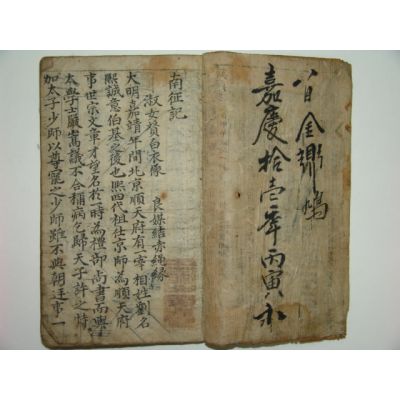 金
嘉慶拾壹年丙寅
南征記
淑女賛白衣像 良媒結赤繩緣
大明嘉靖年間北京順天府有一宰相姓劉名
熙誠意伯基之後也熙四代祖仕京師為順天府
事世宗文章才望名於一時為禮部尚書而與
太學士嚴嵩議不合稱病乞歸天子許之特
加太子少師以尊寵之少師雖不與朝廷事一